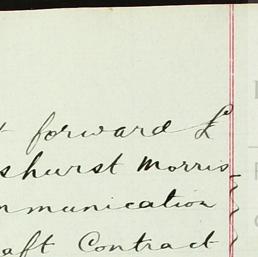 forward £
shurst Morris
mmunication
aft Contract